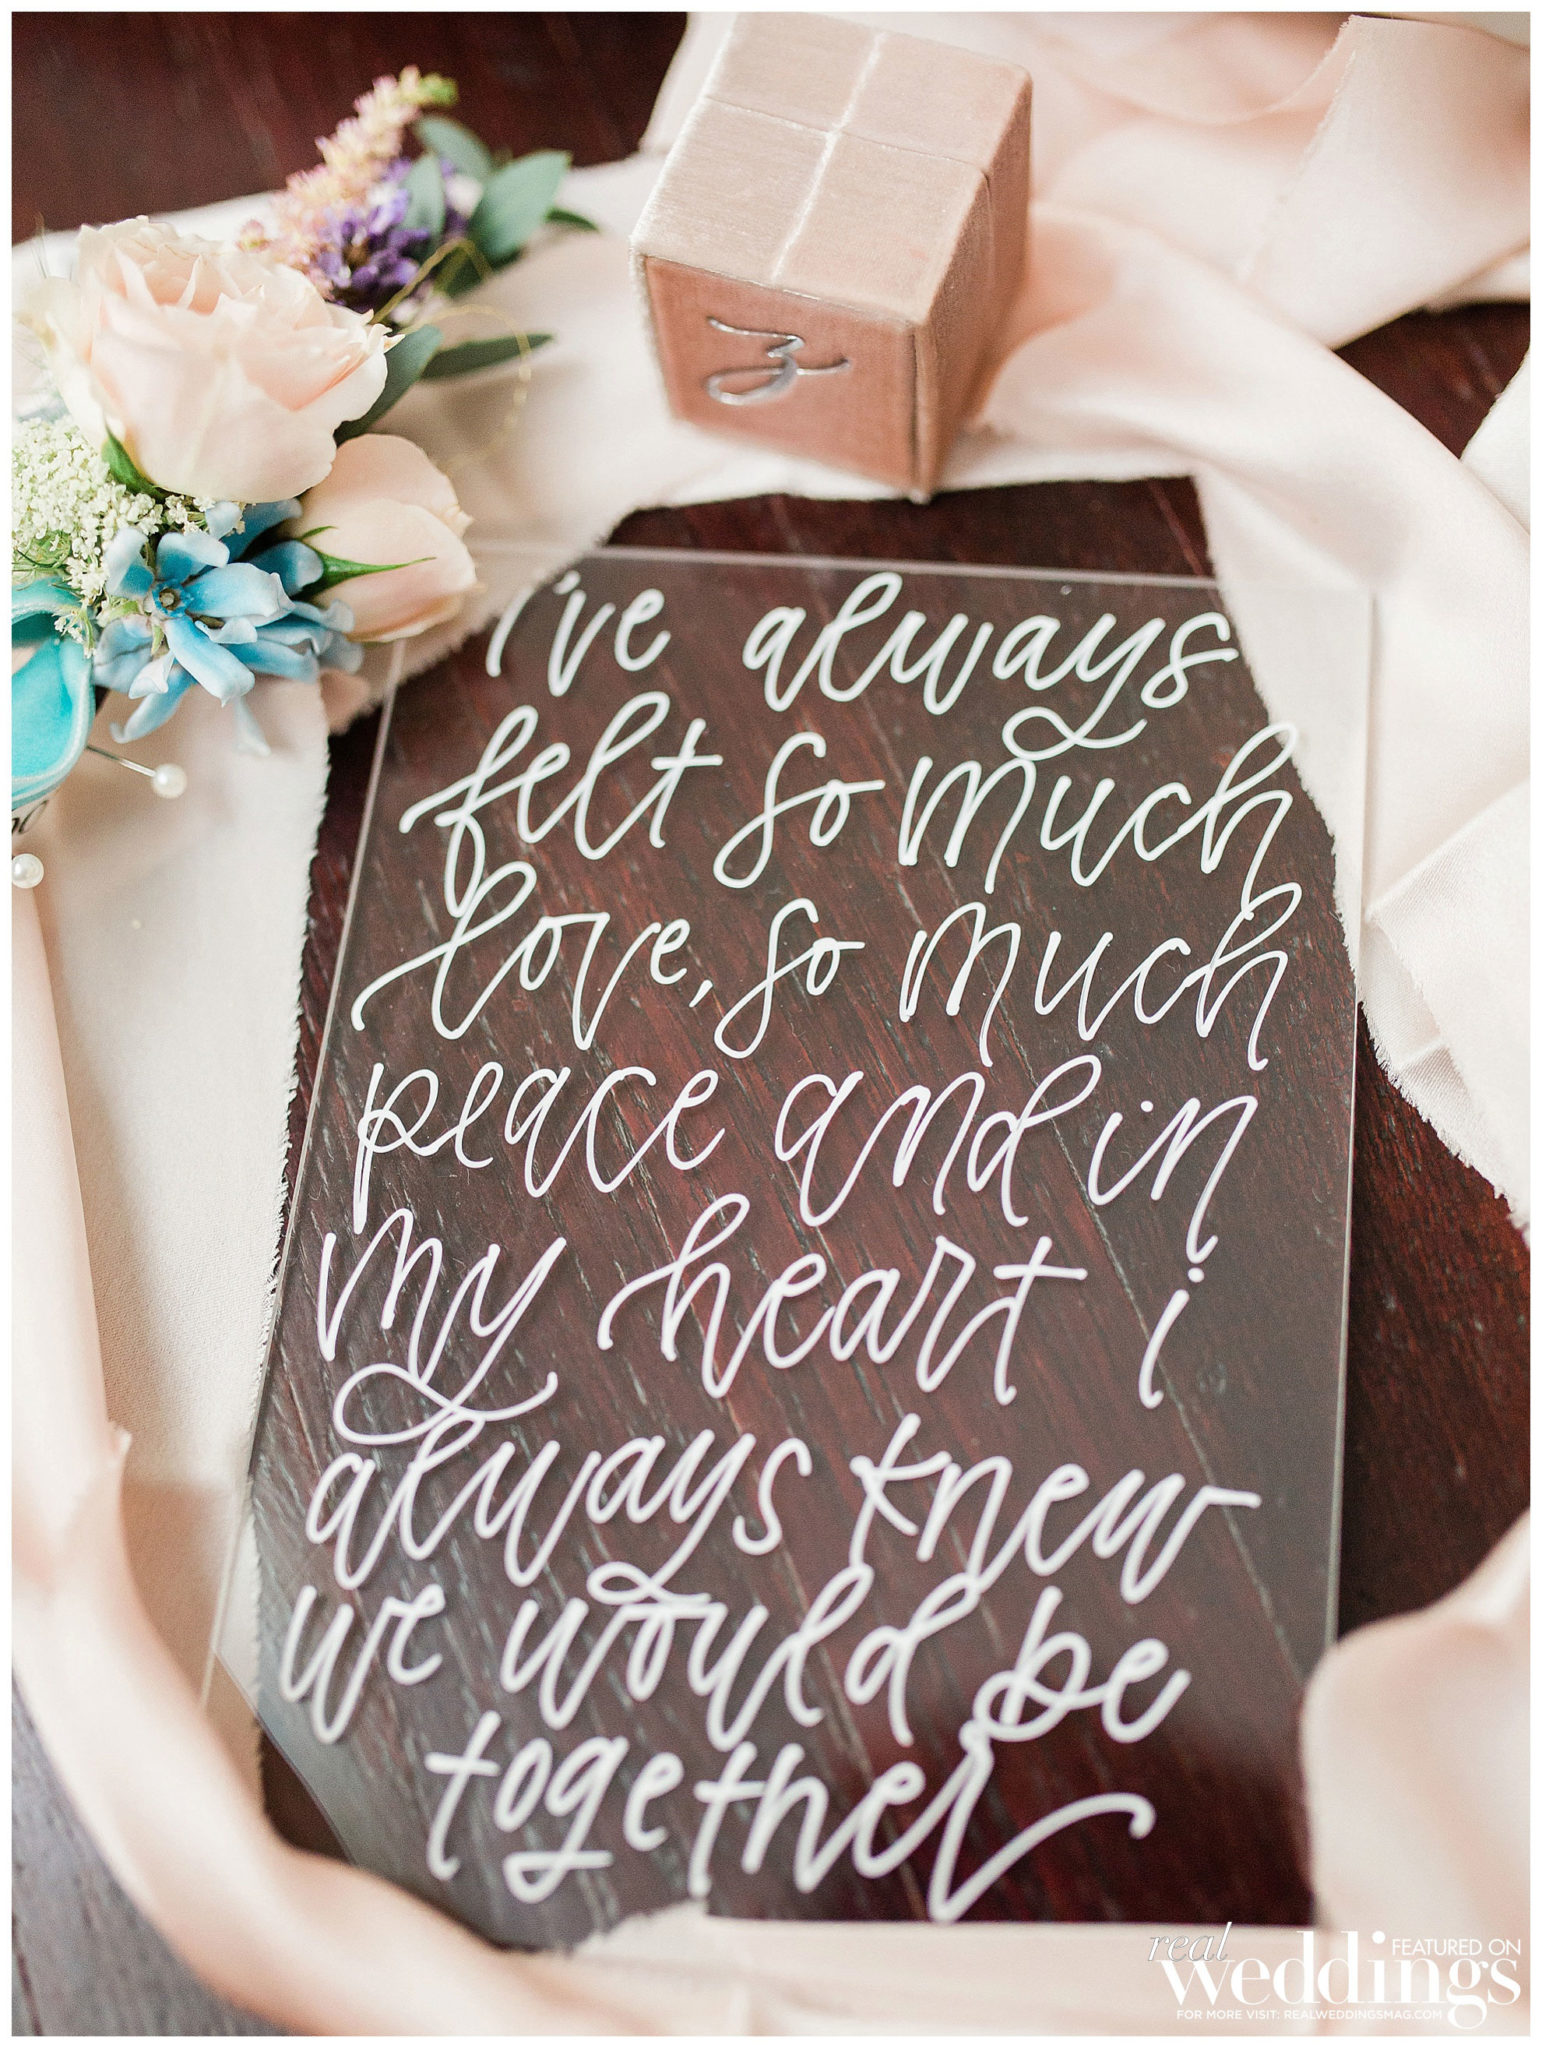 i've always
felt so much
love, so much
peace and in
my heart i
always knew
we would be
together
real
weddings
FEATURED ON
FOR MORE VISIT: REALWEDDINGSMAG.COM